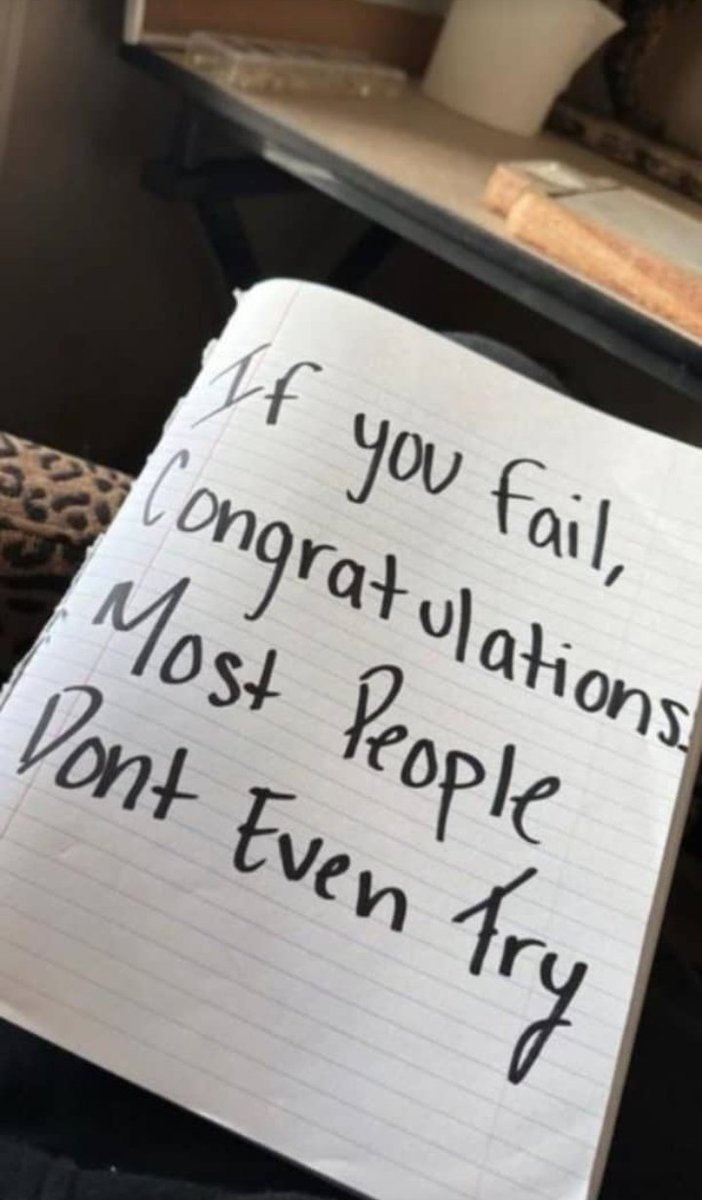 If you fail,
Congratulations.
Most People
Dont Even Try